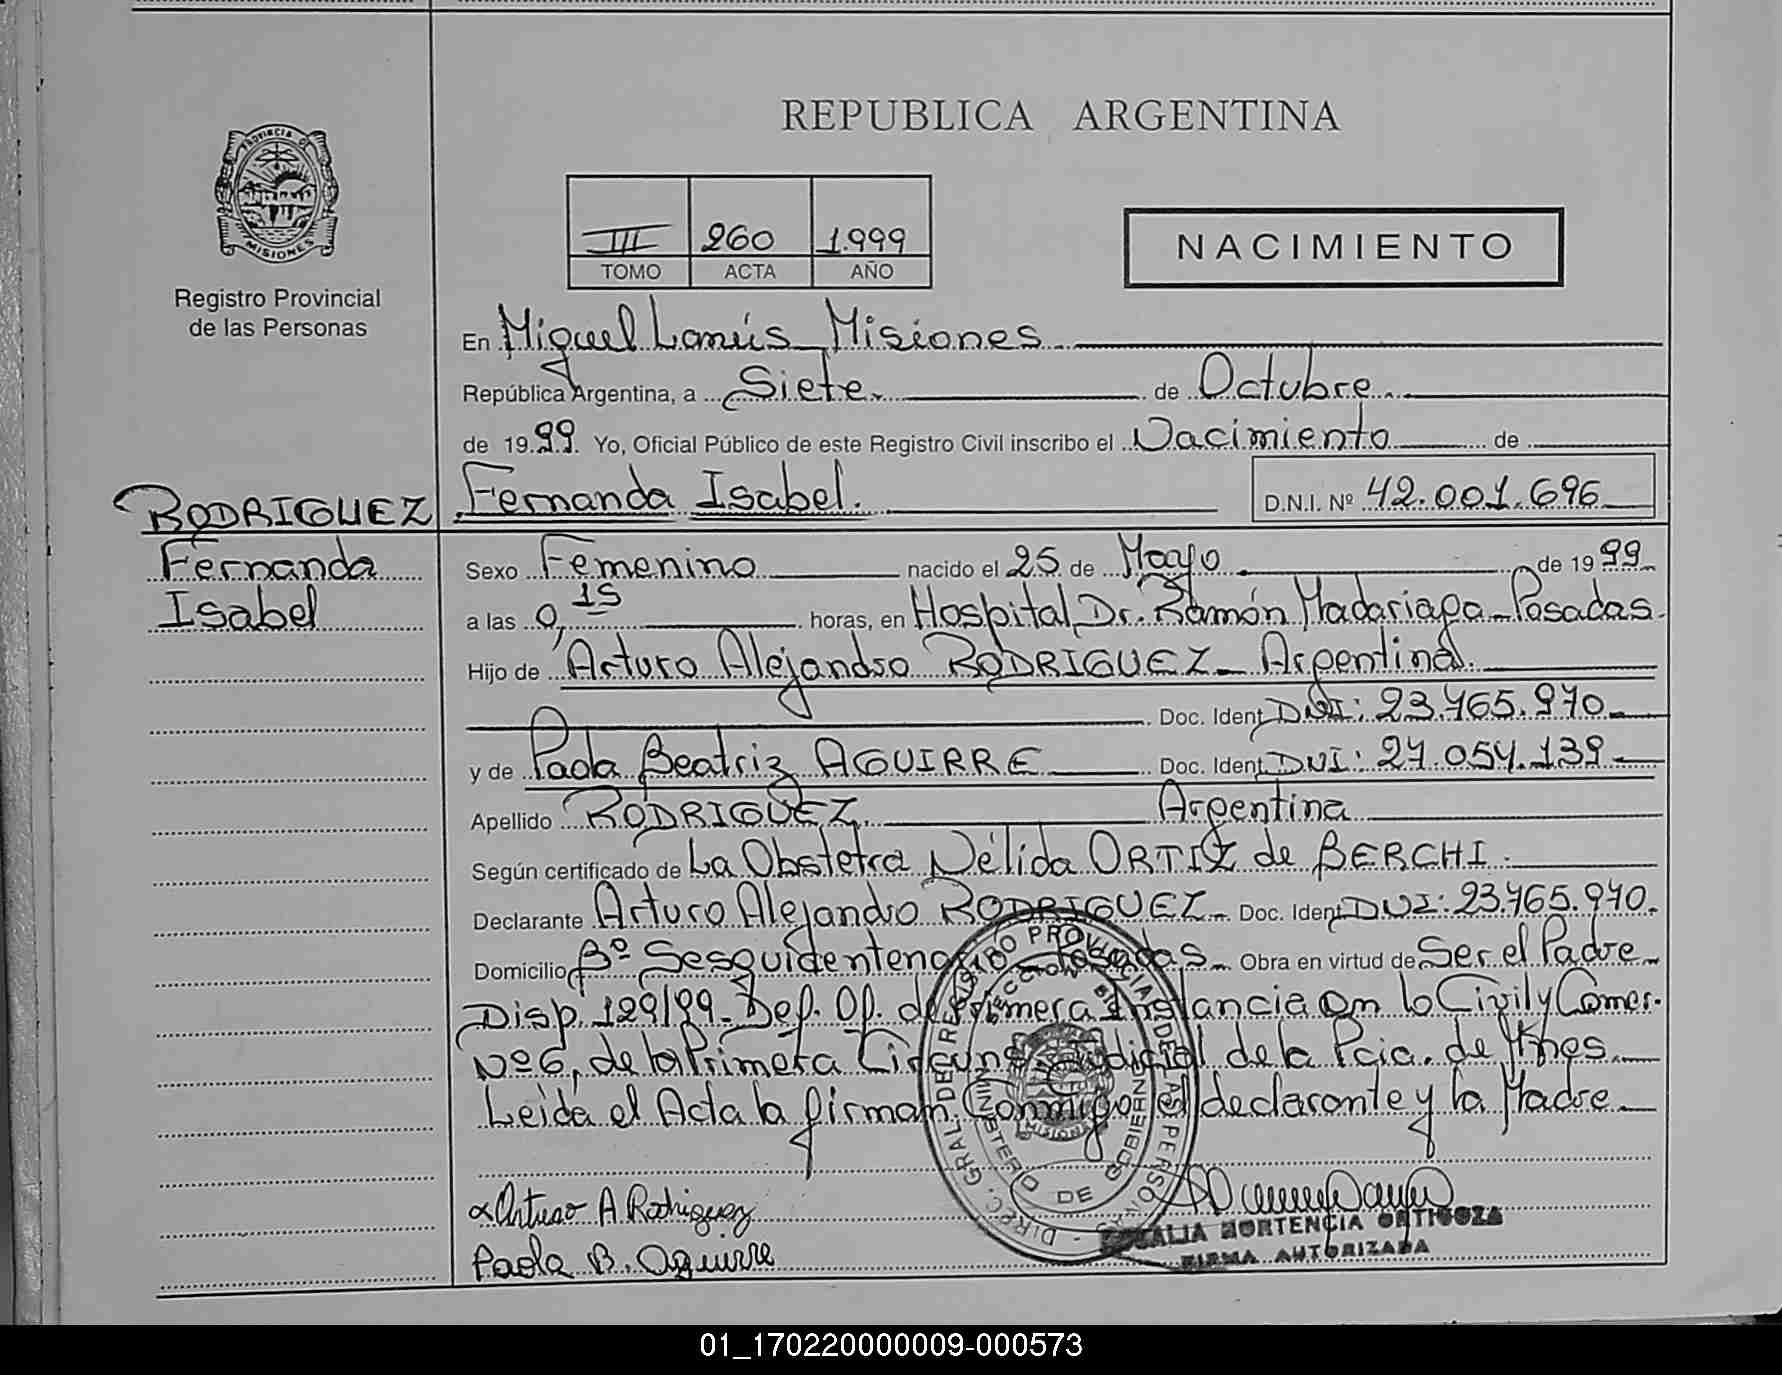 REPUBLICA ARGENTINA
PROVINCIA DE MISIONES
Registro Provincial
de las Personas
III 260 1.999
TOMO ACTA AÑO
NACIMIENTO
En Miguel Lanús Misiones
República Argentina, a Siete. de Octubre.
de 1999. Yo, Oficial Público de este Registro Civil inscribo el Nacimiento de
RODRIGUEZ
Fernanda
Isabel
Fernanda Isabel.
D.N.I. Nº 42.001.696
Sexo Femenino nacido el 25 de Mayo de 1999
a las 0,15 horas, en Hospital Dr. Ramón Madariaga - Posadas.
Hijo de Arturo Alejandro RODRIGUEZ - Argentina.
Doc. Ident. DNI: 23.465.970
y de Paola Beatriz AGUIRRE Doc. Ident. DNI: 27.054.139
Apellido RODRIGUEZ. Argentina
Según certificado de La Obstetra Nélida ORTIZ de BERCHI.
Declarante Arturo Alejandro RODRIGUEZ Doc. Ident. DNI: 23.465.970.
Domicilio Bº Sesquidentenario - Posadas Obra en virtud de Ser el Padre
Disp. 129/99 - Def. Of. de Primera Instancia en lo Civil y Comer.
Nº 6, de la Primera Circuns. Judicial de la Pcia. de Mnes.
Leída el Acta la firman Conmigo el declarante y la Madre
Arturo A Rodriguez
Paola B. Aguirre
DIREC. GRAL. DEL REGISTRO PROVINCIAL DE LAS PERSONAS
MINISTERIO DE GOBIERNO
MISIONES
HORTENCIA ORTIGOZA
FIRMA AUTORIZADA
01_170220000009-000573